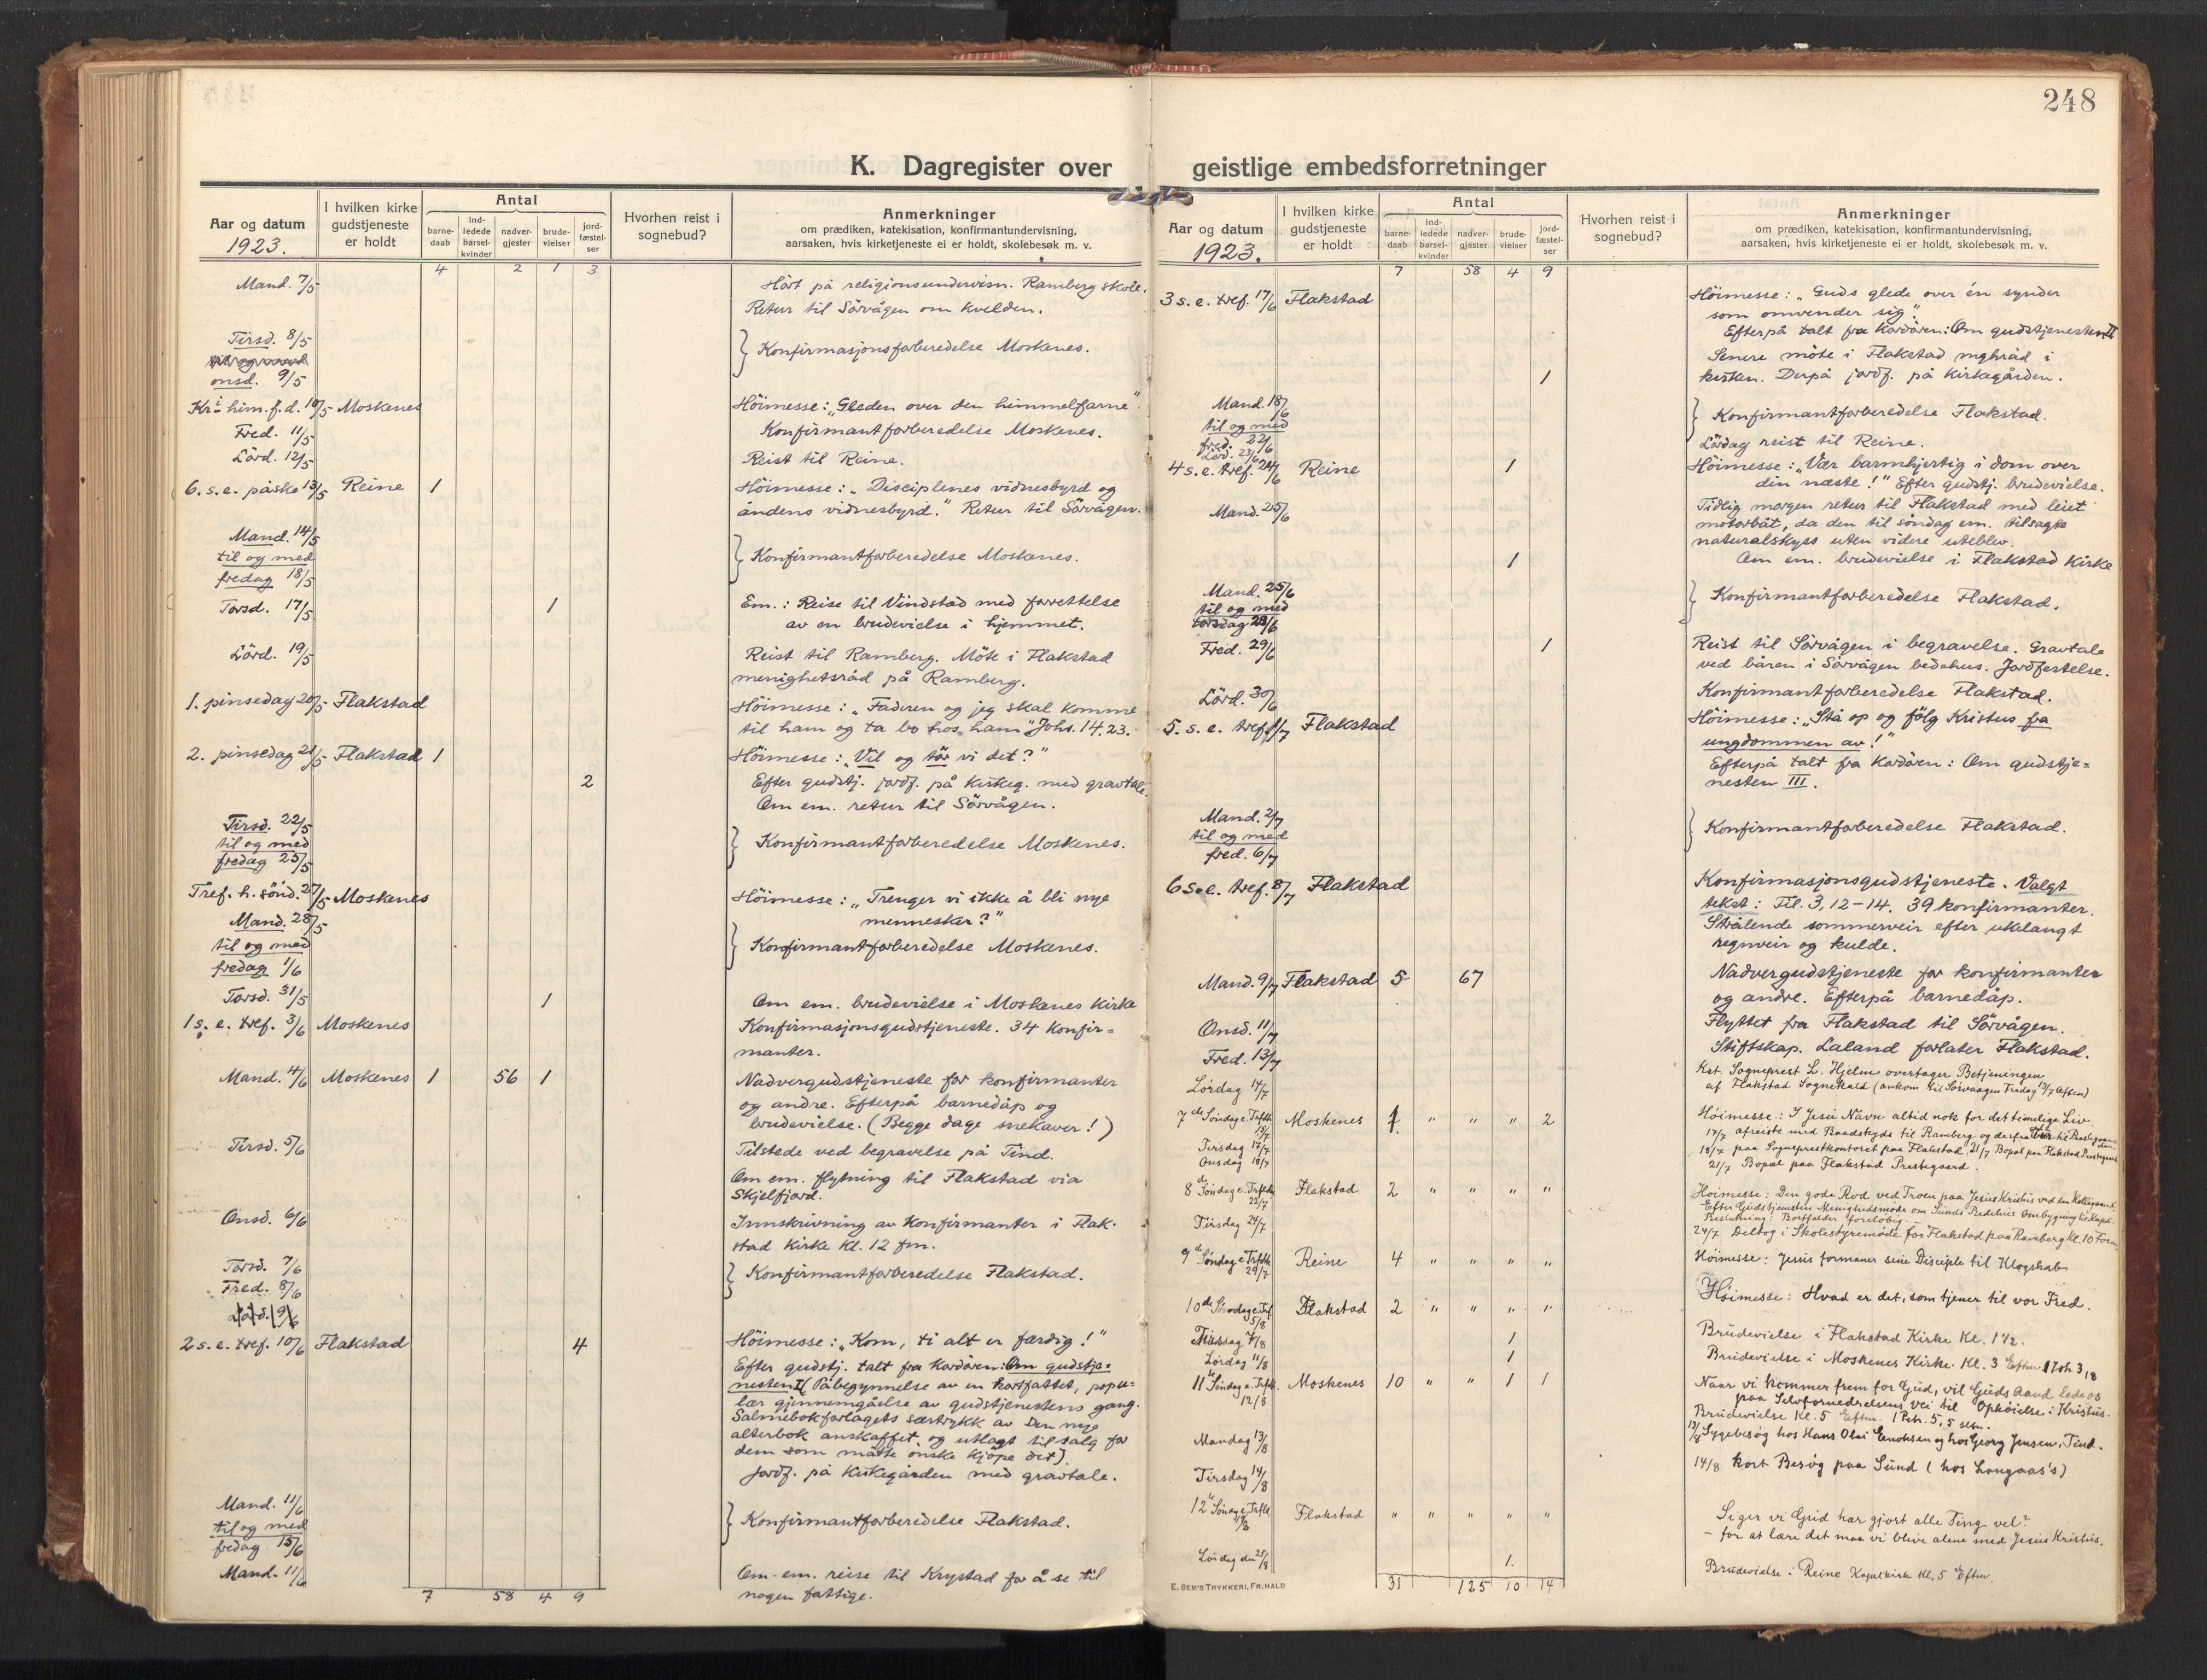 248
K. Dagregister over geistlige embedsforretninger
Aar og datum
1923.
I hvilken kirke gudstjeneste er holdt
Antal
barne-daab
ind-ledede barsel-kvinder
nadver-gjester
brude-vielser
jord-fæstel-ser
Hvorhen reist i sognebud?
Anmerkninger
om prædiken, katekisation, konfirmantundervisning,
aarsaken, hvis kirketjeneste ei er holdt, skolebesøk m. v.
4 2 1 3
Mand. 7/5 Hört på religionsundervisn. Ramberg skole.
Retur til Sörvågen om kvelden.
Tirsd. 8/5
onsd. 9/5
} Konfirmasjonsforberedelse Moskenes.
Kri him.f.d. 10/5 Moskenes Höimesse: „Gleden over den himmelfarne".
Fred. 11/5 Konfirmantforberedelse Moskenes.
Lörd. 12/5 Reist til Reine.
6. s.e. påske 13/5 Reine 1 Höimesse: „Disciplenes vidnesbyrd og
åndens vidnesbyrd." Retur til Sörvågen.
Mand. 14/5
til og med
fredag 18/5
} Konfirmantforberedelse Moskenes.
Torsd. 17/5 1 Em.: Reise til Vindstad med forrettelse
av en brudevielse i hjemmet.
Lörd. 19/5 Reist til Ramberg. Möte i Flakstad
menighetsråd på Ramberg.
1. pinsedag 20/5 Flakstad Höimesse: „Faderen og jeg skal komme
til ham og ta bo hos ham" Johs. 14.23.
2. pinsedag 21/5 Flakstad 1 Höimesse: „Vil og tör vi det?"
2 Efter gudstj. jordf. på kirkeg. med gravtale.
Om em. retur til Sörvågen.
Tirsd. 22/5
til og med
fredag 25/5
} Konfirmantforberedelse Moskenes.
Tref. h. sönd. 27/5 Moskenes Höimesse: „Trenger vi ikke å bli nye
mennesker?"
Mand. 28/5
til og med
fredag 1/6
} Konfirmantforberedelse Moskenes.
Torsd. 31/5 1 Om em. brudevielse i Moskenes kirke
1 s. e. tref. 3/6 Moskenes Konfirmasjonsgudstjeneste. 34 konfir=
manter.
Mand. 4/6 Moskenes 1 56 1 Nadvergudstjeneste for konfirmanter
og andre. Efterpå barnedåp og
brudevielse. (Begge dage snekaver!)
Tirsd. 5/6 Tilstede ved begravelse på Tind.
Om em. flytning til Flakstad via
Skjelfjord.
Onsd. 6/6 Innskrivning av konfirmanter i Flak-
stad kirke kl. 12 fm.
Torsd. 7/6
Fred. 8/6
Lörd. 9/6
} Konfirmantforberedelse Flakstad.
2 s.e. tref. 10/6 Flakstad 4 Höimesse: „Kom, ti alt er færdig!"
Efter gudstj. talt fra kordören: Om gudstje=
nesten I (Påbegynnelse av en kortfattet, popu=
lær gjennemgåelse av gudstjenestens gang.
Salmebokforlagets særtrykk av Den nye
alterbok anskaffet og utlagt til salg for
dem som måtte önske kjöpe det).
Jordf. på kirkegården med gravtale.
Mand. 11/6
til og med
fredag 15/6
} Konfirmantforberedelse Flakstad.
Mand. 11/6 Om em. reise til Krystad for å se til
nogen fattige.
7 58 4 9
Aar og datum
1923.
I hvilken kirke gudstjeneste er holdt
Antal
barne-daab
ind-ledede barsel-kvinder
nadver-gjester
brude-vielser
jord-fæstel-ser
Hvorhen reist i sognebud?
Anmerkninger
om prædiken, katekisation, konfirmantundervisning,
aarsaken, hvis kirketjeneste ei er holdt, skolebesøk m. v.
7 58 4 9
3 s. e. tref. 17/6 Flakstad Höimesse: „Guds glede over én synder
som omvender sig".
Efterpå talt fra kordören: Om gudstjenesten II
Senere möte i Flakstad mghråd i
1 kirken. Derpå jordf. på kirkegården.
Mand. 18/6
til og med
fred. 22/6
} Konfirmantforberedelse Flakstad.
Lörd. 23/6 Lördag reist til Reine.
4 s. e. tref. 24/6 Reine 1 Höimesse: „Vær barmhjertig i dom over
din næste!" Efter gudstj. brudevielse.
Mand. 25/6 Tidlig morgen retur til Flakstad med leiet
motorbåt, da den til söndag em. tilsagte
naturalskyss uten videre uteblev.
1 Om em. brudevielse i Flakstad kirke
Mand. 25/6
til og med
torsdag 28/6
} Konfirmantforberedelse Flakstad.
Fred. 29/6 1 Reist til Sörvågen i begravelse. Gravtale
ved båren i Sörvågen bedehus. Jordfestelse.
Lörd. 30/6 Konfirmantforberedelse Flakstad.
5. s. e. tref. 1/7 Flakstad Höimesse: „Stå op og fölg Kristus fra
ungdommen av!"
Efterpå talt fra kordören: Om gudstje=
nesten III.
Mand. 2/7
til og med
fred. 6/7
} Konfirmantforberedelse Flakstad.
6 s.e. tref. 8/7 Flakstad Konfirmasjonsgudstjeneste. Valgt
tekst: Fil. 3, 12-14. 39 konfirmanter.
Strålende sommerveir efter ukelangt
regnveir og kulde.
Mand. 9/7 Flakstad 5 67 Nadvergudstjeneste for konfirmanter
og andre. Efterpå barnedåp.
Onsd. 11/7 Flyttet fra Flakstad til Sörvågen.
Fred. 13/7 Stiftskap. Laland forlater Flakstad.
Lördag 14/7 Kst. Sogneprest L. Hjelm overtager Betjeningen
af Flakstad Sognekald (ankom til Sørvaagen Fredag 13/7 Aften)
7de Søndag e. Trefdh. 15/7 Moskenes 1 " " " 2 Høimesse: I Jesu Navn altid nok for det timelige Liv.
Tirsdag 17/7 17/7 afreiste med Baadskyds til Ramberg og derfra
Onsdag 18/7 18/7 paa Sogneprestkontoret paa Flakstad
21/7 Bopæl paa Flakstad Prestegaard.
8de Søndag e. Trefdh. 22/7 Flakstad 2 " " " " Høimesse: Den gode Rod ved Troen paa Jesus Kristus
Efter Gudstjenesten Menighedsmøde om Sunds Bedehus Ombygning til Kapel.
Beslutning: Bortfalder foreløbig.
Tirsdag 24/7 24/7 Deltog i Skolestyremøde for Flakstad paa Ramberg Kl. 10 Form.
9de Søndag e. Trefdh. 29/7 Reine 4 " " " " Høimesse: Jesus formaner sine Disciple til Klogskab
10de Søndag e. Tref. 5/8 Flakstad 2 " " " " Høimesse: Hvad er det, som tjener til vor Fred.
Tirsdag 7/8 1 Brudevielse i Flakstad Kirke Kl. 1 1/2.
Lørdag 11/8 1 Brudevielse i Moskenes Kirke. Kl. 3 Eftm. 1 Joh 3,18
11te Søndag e. Trefdh. 12/8 Moskenes 10 " " 1 1 Naar vi kommer frem for Gud, vil Guds Aand lede os
paa Selvfornedrelsens Vei til Ophøielse i Kristus.
Brudevielse Kl. 5 Eftm. 1 Petr. 5, 5
Mandag 13/8 13/8 Sygebesøg hos Hans Olai Enoksen og hos Georg Jensen, Tind.
Tirsdag 14/8 14/8 kort Besøg paa Sund (hos Langaas's)
12te Søndag e. Trefdh. Flakstad " " " " " Siger vi Gud har gjort alle Ting vel?
– for at lære det maa vi blive alene med Jesus Kristus.
Lørdag den 25/8 1. Brudevielse i Reine Kapelkirke Kl. 5 Eftm.
E. SEM'S TRYKKERI, FR.HALD
31 125 10 14